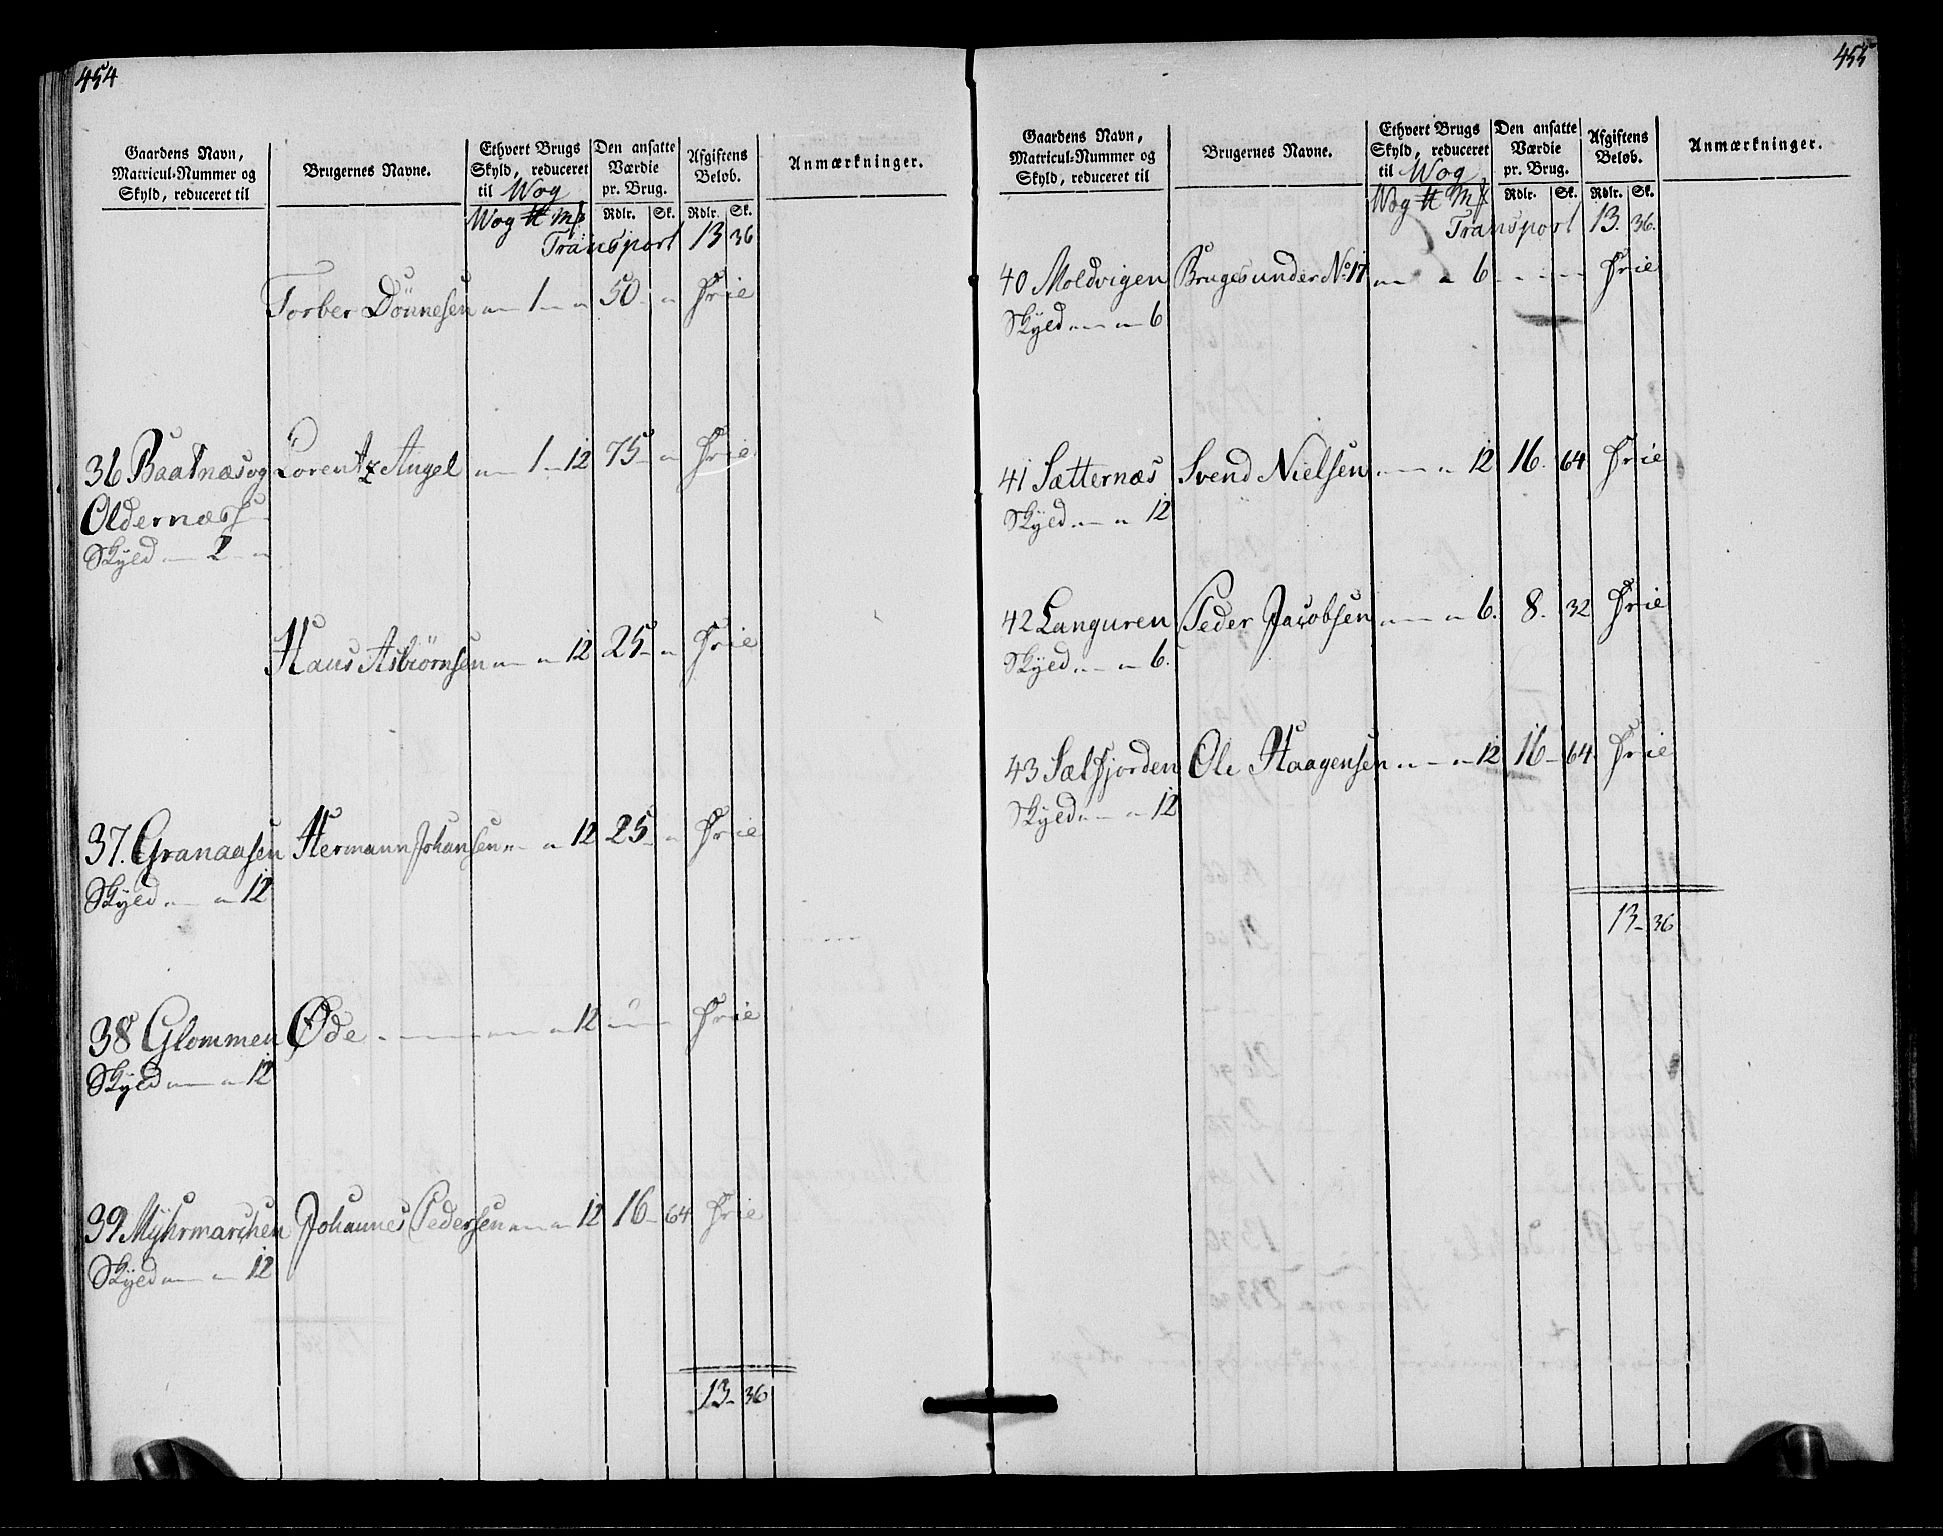 454
Gaardens Navn, Matricul-Nummer og Skyld, reduceret til | Brugernes Navne. | Ethvert Brugs Skyld, reduceret til Wog | Den ansatte Værdie pr. Brug. | Afgiftens Beløb. | Anmærkninger.
Wog ℔ Mk | Rdlr. | Sk. | Rdlr. | Sk.
Transport 13 36
Torber Dönnesen „ 1 „ 50 „ Frie
36 Baatnæs og Lorentz Angel „ 1 „ 12 75 „ Frie
Oldernæss
Skyld „ 2 „
Hans Asbiörnsen „ „ 12 25 „ Frie
37. Granaasen Hermann Johansen „ „ 12 25 „ Frie
Skyld „ „ 12
38 Glommen Øde „ „ 12 „ Frie
Skyld „ „ 12
39 Myhrmarchen Johannes Pedersen „ „ 12 16 64 Frie
Skyld „ „ 12
13 36
455
Gaardens Navn, Matricul-Nummer og Skyld, reduceret til | Brugernes Navne. | Ethvert Brugs Skyld, reduceret til Wog | Den ansatte Værdie pr. Brug. | Afgiftens Beløb. | Anmærkninger.
Wog ℔ Mk | Rdlr. | Sk. | Rdlr. | Sk.
Transport 13. 36.
40 Moldvigen Bruges under No 17 „ „ 6 - - - - Frie
Skyld „ „ 6
41 Sætternæs Svend Nielsen „ „ 12 16. 64 Frie
Skyld „ „ 12
42 Languren Peder Jacobsen „ „ 6. 8. 32 Frie
Skyld „ „ 6.
43 Sælfjorden Ole Haagensen „ „ 12 16 64 Frie
Skyld „ „ 12
13 36